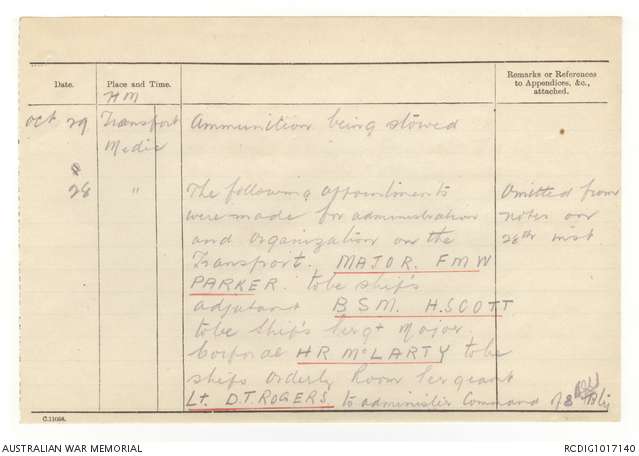 Date.
Place and Time.
Remarks or References
to Appendices, &c.,
attached.
HM
Oct 29 Transport Ammunition being stowed
Medic
28 " The following appointments Omitted from
were made for administration notes on
and organization on the 28th inst
Transport. MAJOR. F M W
PARKER. to be ship's
adjutant B S M. H. SCOTT
to be Ship's Sergt Major.
Corporal H R McLARTY to be
ships Orderly Room Sergeant
Lt. D. T. ROGERS. to administer Command of 8th Bty
C.11034.
AUSTRALIAN WAR MEMORIAL
RCDIG1017140